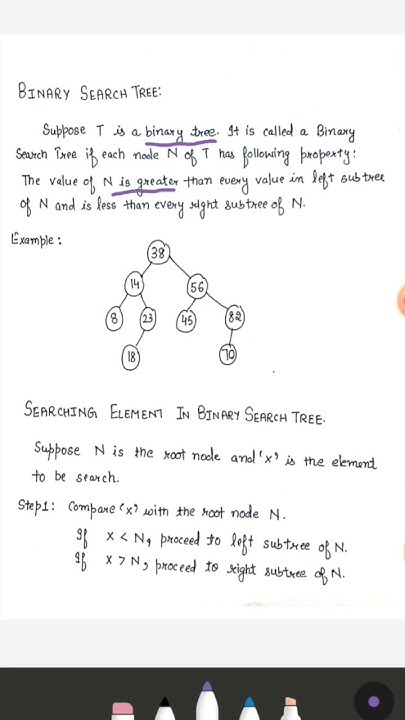 BINARY SEARCH TREE:
Suppose T is a binary tree. It is called a Binary
Search Tree if each node N of T has following property:
The value of N is greater than every value in left subtree
of N and is less than every right subtree of N.
Example:
38
14 56
8 23 45 82
18 70
SEARCHING ELEMENT IN BINARY SEARCH TREE.
Suppose N is the root node and 'x' is the element
to be search.
Step1: Compare 'x' with the root node N.
If x < N, proceed to left subtree of N.
If x > N, proceed to right subtree of N.